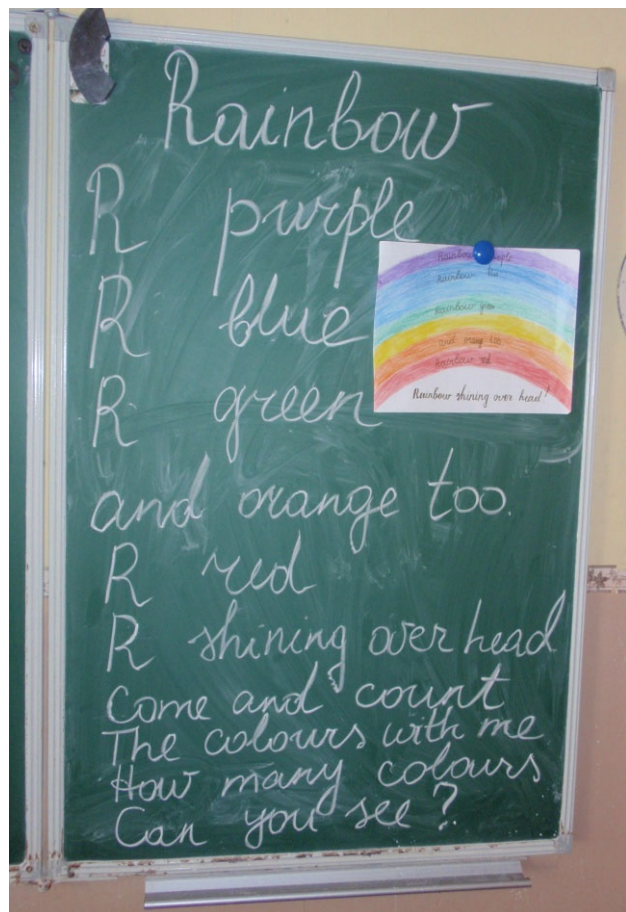 Rainbow
R purple
R blue
R green
and orange too.
R red
R shining over head
Come and count
The colours with me
How many colours
Can you see?
Rainbow purple
Rainbow blue
Rainbow green
and orange too
Rainbow red
Rainbow shining over head!